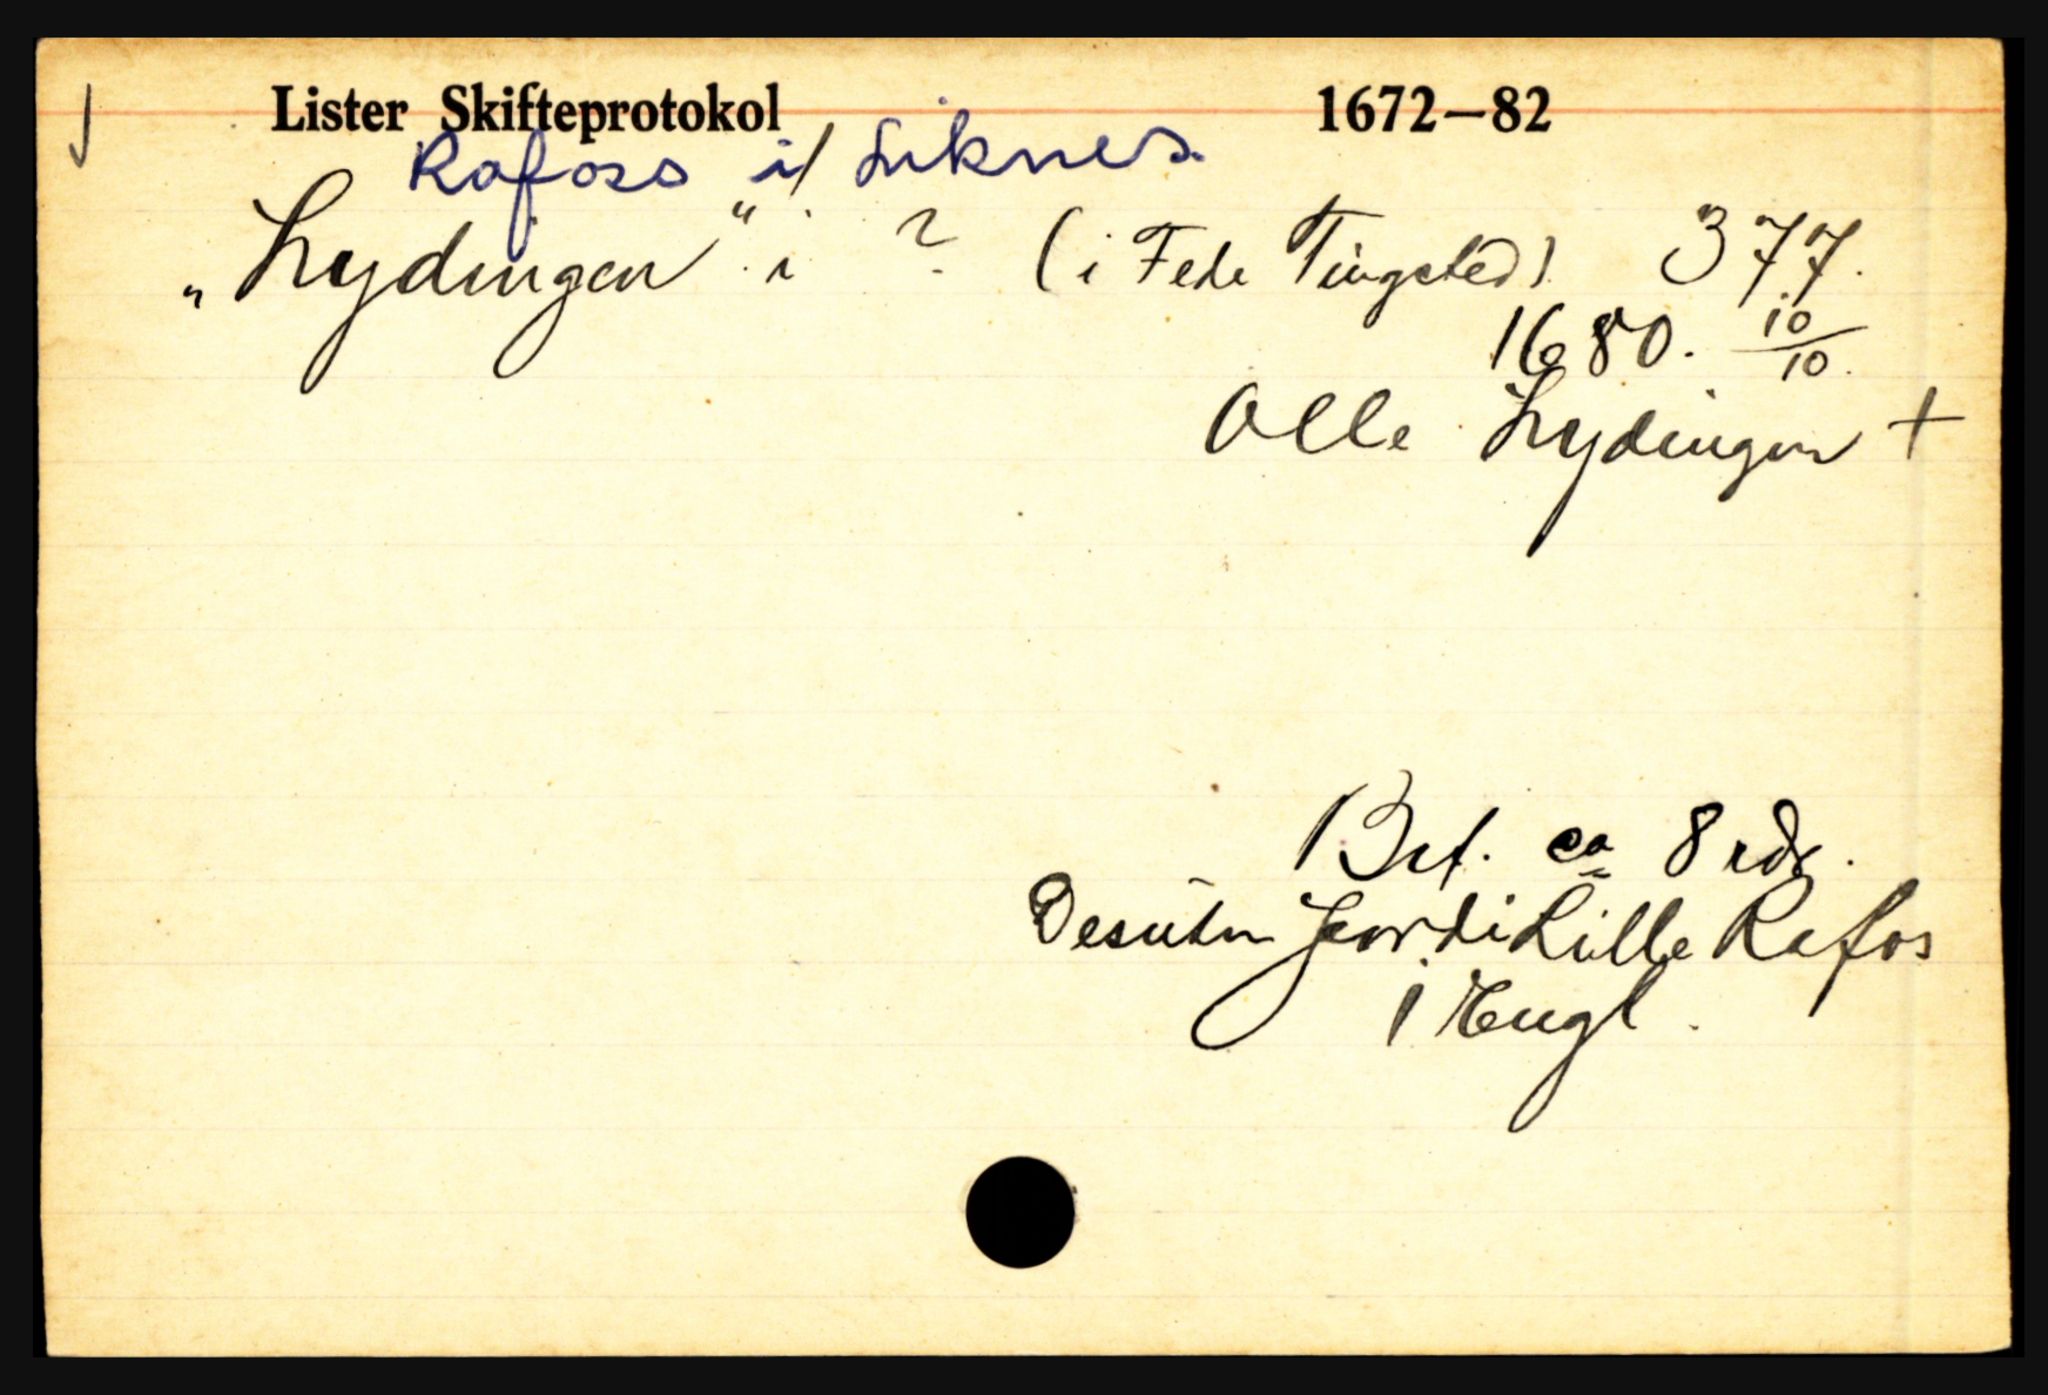 Lister Skifteprotokol 1672—82
Rafoss i/ Liknes.
„Lydingen" i ? (i Fede Tingsted) 377.
1680. 10/10.
Olle Lydingen +
Brt. ca 8 rdr.
Desuten Jord i Lille Rafos
i Eugl.